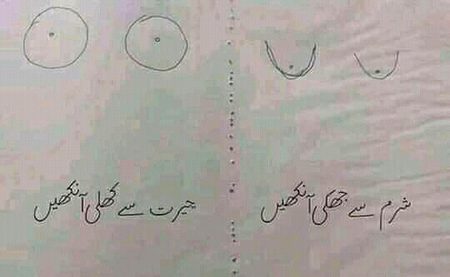 شرم سے جھکی آنکھیں
حیرت سے کھلی آنکھیں